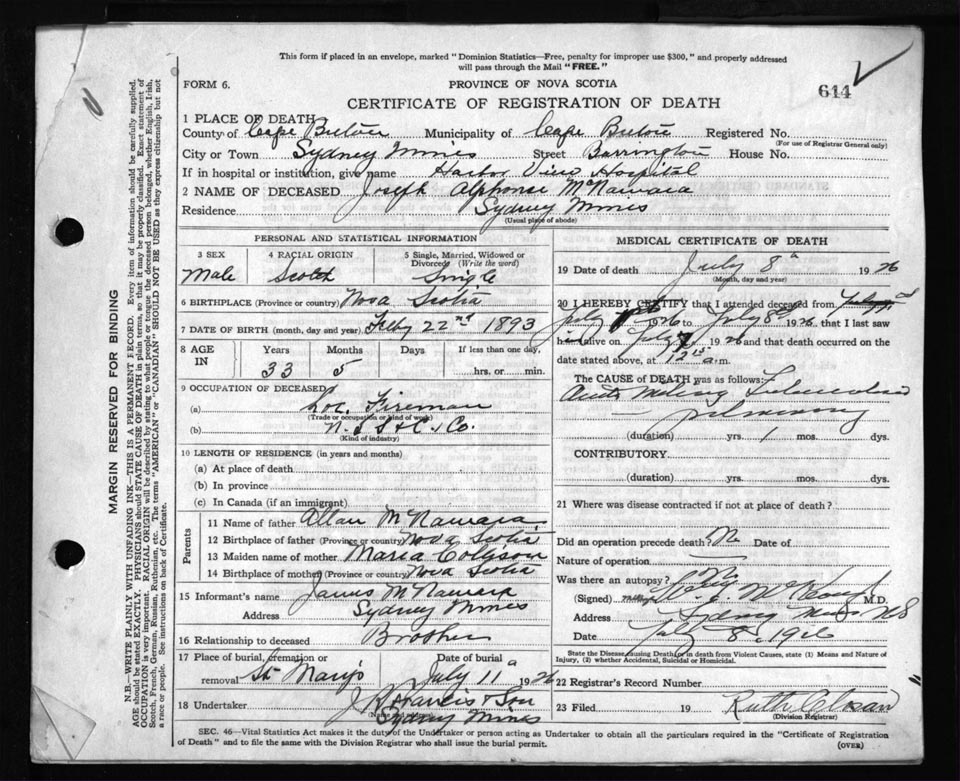 This form if placed in an envelope, marked "Dominion Statistics—Free, penalty for improper use $300," and properly addressed
will pass through the Mail "FREE."
FORM 6.
PROVINCE OF NOVA SCOTIA
644
CERTIFICATE OF REGISTRATION OF DEATH
1 PLACE OF DEATH
County of Cape Breton Municipality of Cape Breton Registered No.
(For use of Registrar General only)
City or Town Sydney Mines Street Barrington House No.
If in hospital or institution, give name Harbor View Hospital
2 NAME OF DECEASED Joseph Alphonse McNamara
Residence Sydney Mines
(Usual place of abode)
PERSONAL AND STATISTICAL INFORMATION
3 SEX 4 RACIAL ORIGIN 5 Single, Married, Widowed or Divorced (Write the word)
Male Scotch Single
6 BIRTHPLACE (Province or country) Nova Scotia
7 DATE OF BIRTH (month, day and year) Feby 22nd 1893
8 AGE IN Years Months Days If less than one day,
33 5 hrs. or min.
9 OCCUPATION OF DECEASED
(a) Loc. Fireman
(Trade or occupation or kind of work)
(b) N.S.S & C. Co.
(Kind of industry)
10 LENGTH OF RESIDENCE (in years and months)
(a) At place of death
(b) In province
(c) In Canada (if an immigrant)
Parents
11 Name of father Allan McNamara
12 Birthplace of father (Province or country) Nova Scotia
13 Maiden name of mother Maria Collison
14 Birthplace of mother (Province or country) Nova Scotia
15 Informant's name James McNamara
Address Sydney Mines
16 Relationship to deceased Brother
17 Place of burial, cremation or removal St Mary's Date of burial July 11 1926
18 Undertaker J Francis & Son
Sydney Mines
MEDICAL CERTIFICATE OF DEATH
19 Date of death July 8 1926
(Month, day and year)
20 I HEREBY CERTIFY that I attended deceased from
July 1926 to July 8 1926, that I last saw
h alive on July 7 1926 and that death occurred on the
date stated above, at 12 15 a.m.
The CAUSE of DEATH was as follows:
Acute Miliary Tuberculosis
pulmonary
(duration) yrs. 1 mos. dys.
CONTRIBUTORY
(duration) yrs. mos. dys.
21 Where was disease contracted if not at place of death?
Did an operation precede death? No Date of
Nature of operation
Was there an autopsy? No
(Signed) M.D.
Address Sydney Mines NS
Date July 8, 1926
State the Disease causing Death, or in death from Violent Causes, state (1) Means and Nature of
Injury, (2) whether Accidental, Suicidal or Homicidal.
22 Registrar's Record Number
23 Filed 19 Ruth
(Division Registrar)
SEC. 46—Vital Statistics Act makes it the duty of the Undertaker or person acting as Undertaker to obtain all the particulars required in the "Certificate of Registration
of Death" and to file the same with the Division Registrar who shall issue the burial permit.
(OVER)
MARGIN RESERVED FOR BINDING
N.B.—WRITE PLAINLY WITH UNFADING INK—THIS IS A PERMANENT RECORD. Every item of information should be carefully supplied.
AGE should be stated EXACTLY. PHYSICIANS should STATE CAUSE OF DEATH in plain terms, so that it may be properly classified. Exact statement of
OCCUPATION is very important. RACIAL ORIGIN will be described by stating to what people or tongue the deceased person belonged, whether English, Irish,
Scotch, French, German, Russian, Ruthenian, etc. The terms "AMERICAN" or "CANADIAN" SHOULD NOT BE USED as they express citizenship but not
a race or people. See instructions on back of Certificate.